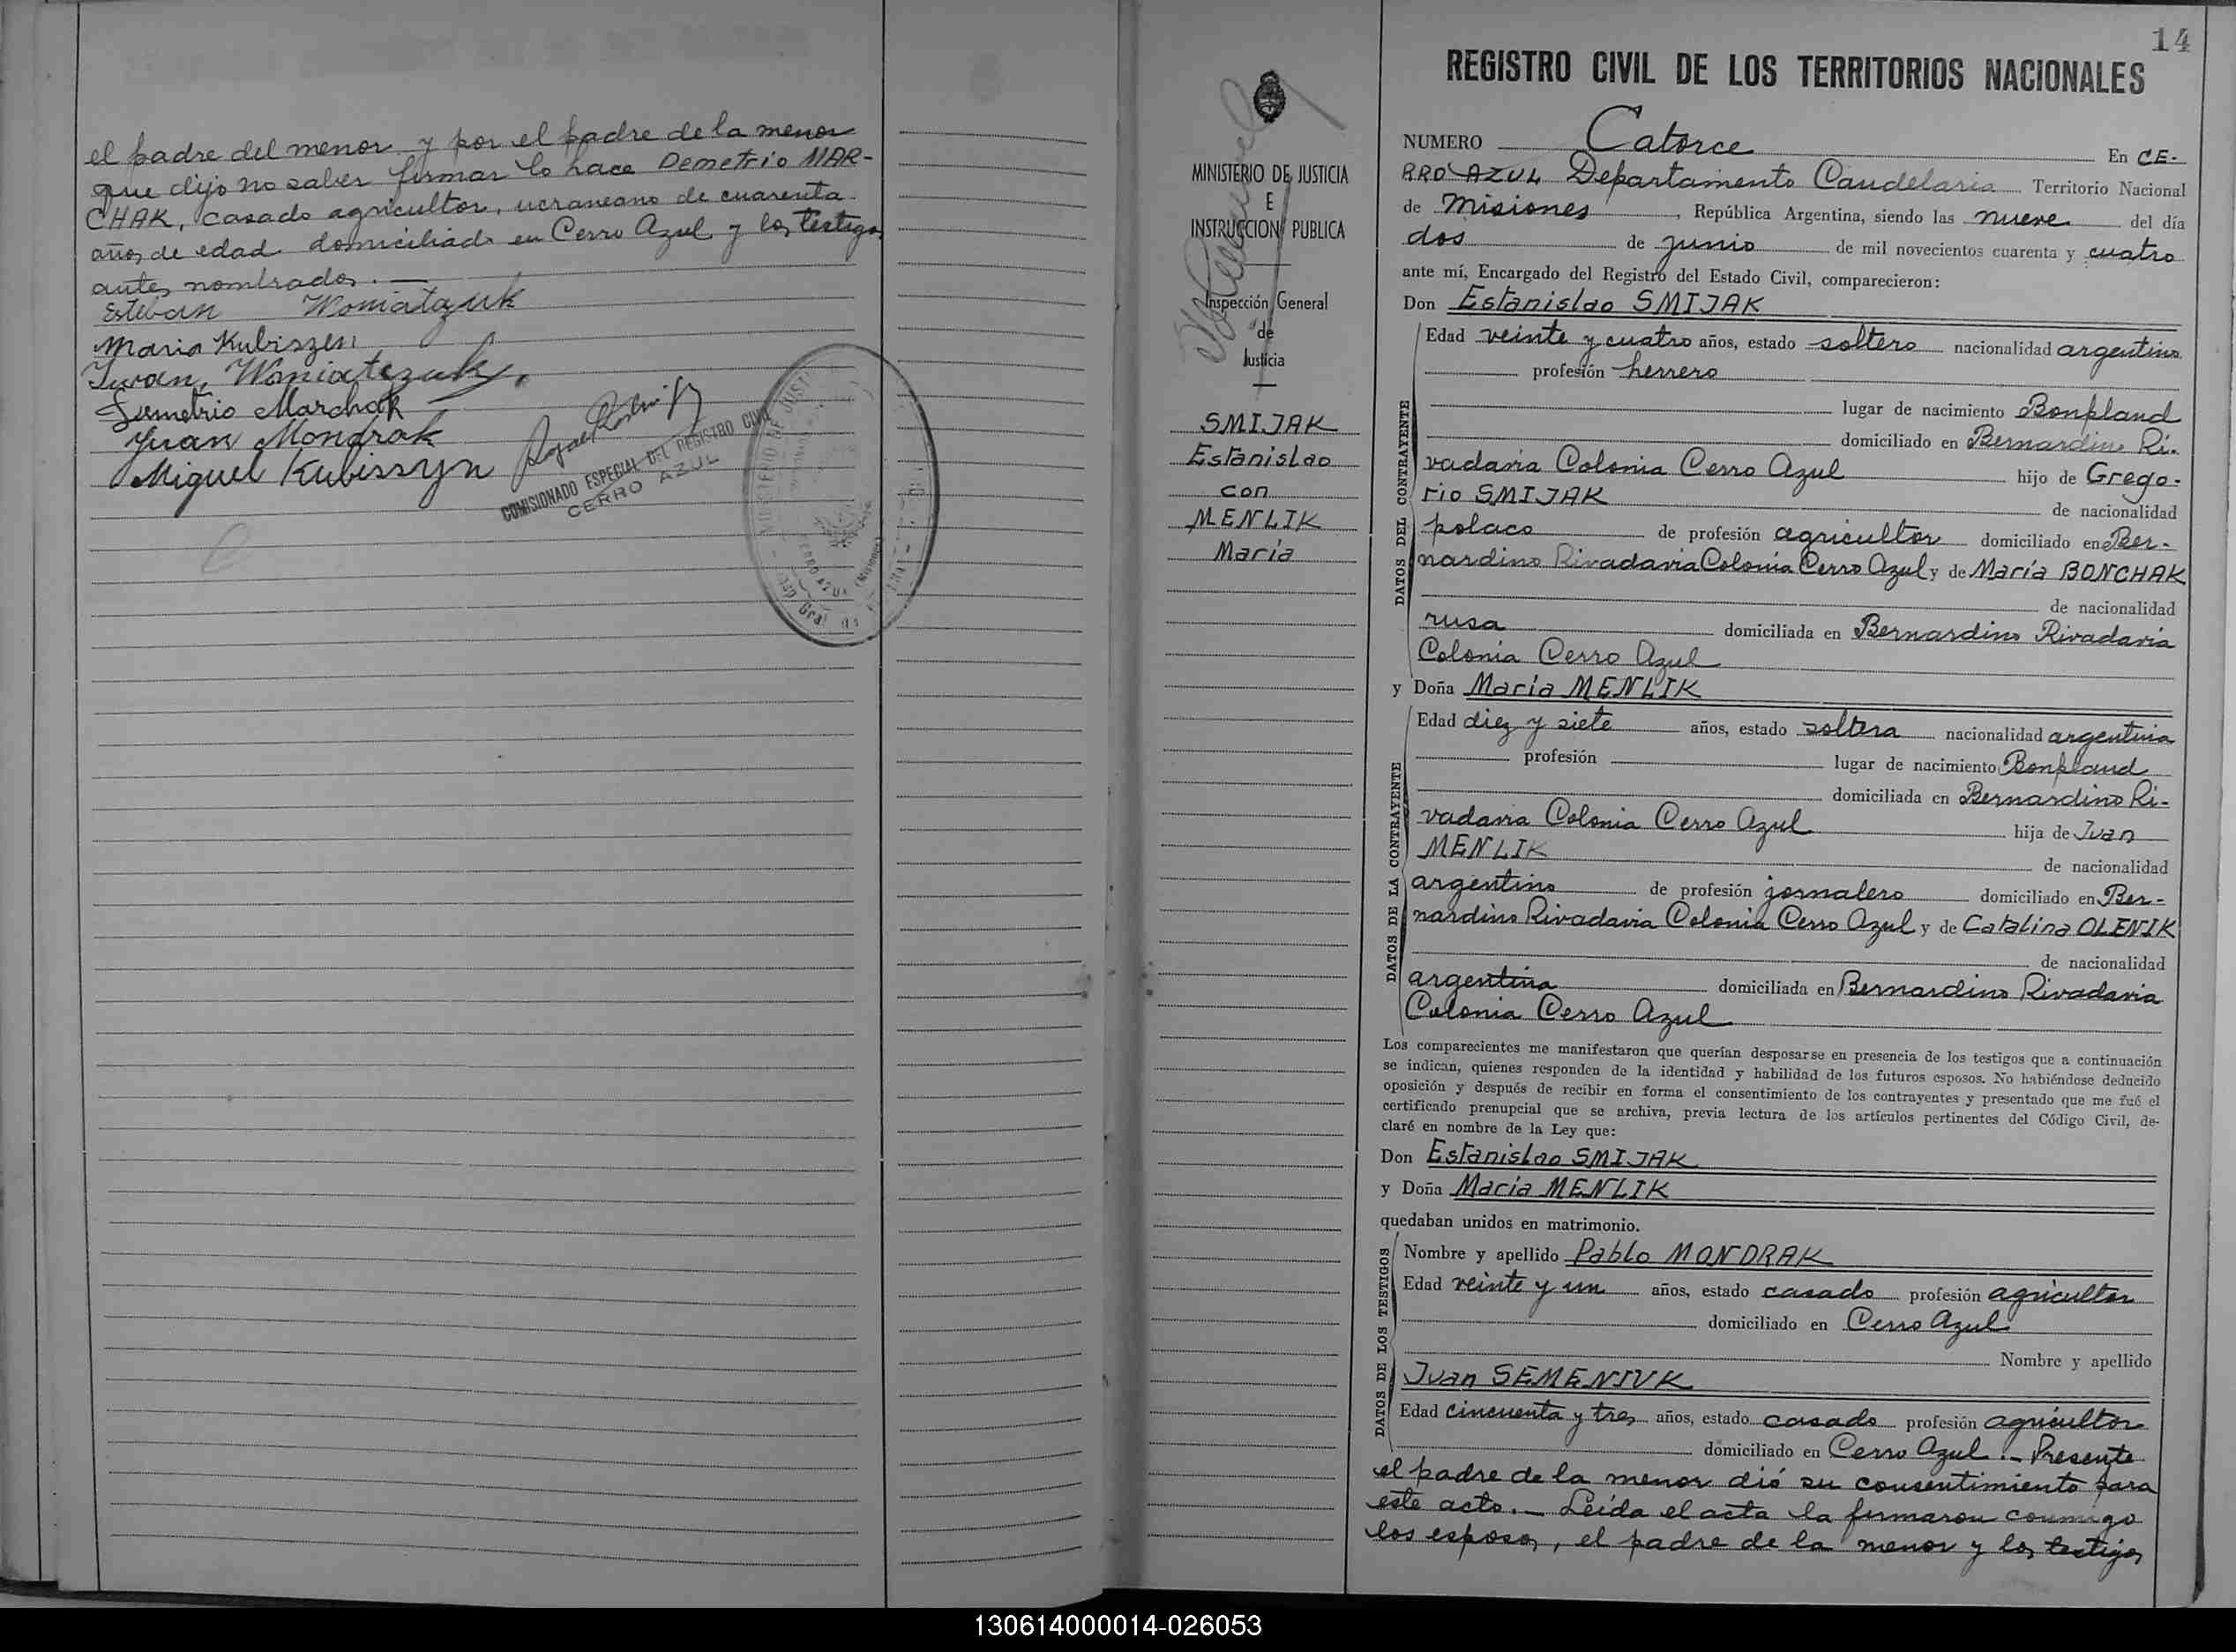 el padre del menor y por el padre de la menor
que dijo no saber firmar lo hace Demetrio MAR-
CHAK, casado agricultor, ucraneano de cuarenta
años de edad domiciliado en Cerro Azul y los testigos
antes nombrados.—
Esteban Woniatzuk
Maria Kubiszen
Iwan, Woniatczuk.
Demetrio Marchak
Juan Mondrak
Miguel Kubissyn
COMISIONADO ESPECIAL DEL REGISTRO CIVIL
CERRO AZUL
14
MINISTERIO DE JUSTICIA
E
INSTRUCCION PUBLICA
Inspección General
de
Justicia
SMIJAK
Estanislao
con
MENLIK
María
REGISTRO CIVIL DE LOS TERRITORIOS NACIONALES
NUMERO Catorce En CE-
RRO AZUL Departamento Candelaria Territorio Nacional
de Misiones, República Argentina, siendo las nueve del día
dos de junio de mil novecientos cuarenta y cuatro
ante mí, Encargado del Registro del Estado Civil, comparecieron:
Don Estanislao SMIJAK
DATOS DEL CONTRAYENTE
Edad veinte y cuatro años, estado soltero nacionalidad argentino
profesión herrero
lugar de nacimiento Bonpland
domiciliado en Bernardino Ri-
vadavia Colonia Cerro Azul hijo de Grego-
rio SMIJAK de nacionalidad
polaco de profesión agricultor domiciliado en Ber-
nardino Rivadavia Colonia Cerro Azul y de María BONCHAK
de nacionalidad
rusa domiciliada en Bernardino Rivadavia
Colonia Cerro Azul
y Doña María MENLIK
DATOS DE LA CONTRAYENTE
Edad diez y siete años, estado soltera nacionalidad argentina
profesión lugar de nacimiento Bonpland
domiciliada en Bernardino Ri-
vadavia Colonia Cerro Azul hija de Juan
MENLIK de nacionalidad
argentino de profesión jornalero domiciliado en Ber-
nardino Rivadavia Colonia Cerro Azul y de Catalina OLENIK
de nacionalidad
argentina domiciliada en Bernardino Rivadavia
Colonia Cerro Azul
Los comparecientes me manifestaron que querían desposarse en presencia de los testigos que a continuación
se indican, quienes responden de la identidad y habilidad de los futuros esposos. No habiéndose deducido
oposición y después de recibir en forma el consentimiento de los contrayentes y presentado que me fué el
certificado prenupcial que se archiva, previa lectura de los artículos pertinentes del Código Civil, de-
claré en nombre de la Ley que:
Don Estanislao SMIJAK
y Doña María MENLIK
quedaban unidos en matrimonio.
DATOS DE LOS TESTIGOS
Nombre y apellido Pablo MONDRAK
Edad veinte y un años, estado casado profesión agricultor
domiciliado en Cerro Azul
Nombre y apellido
Juan SEMENIUK
Edad cincuenta y tres años, estado casado profesión agricultor
domiciliado en Cerro Azul.- Presente
el padre de la menor dió su consentimiento para
este acto.— Leída el acta la firmaron conmigo
los esposos, el padre de la menor y los testigos
130614000014-026053